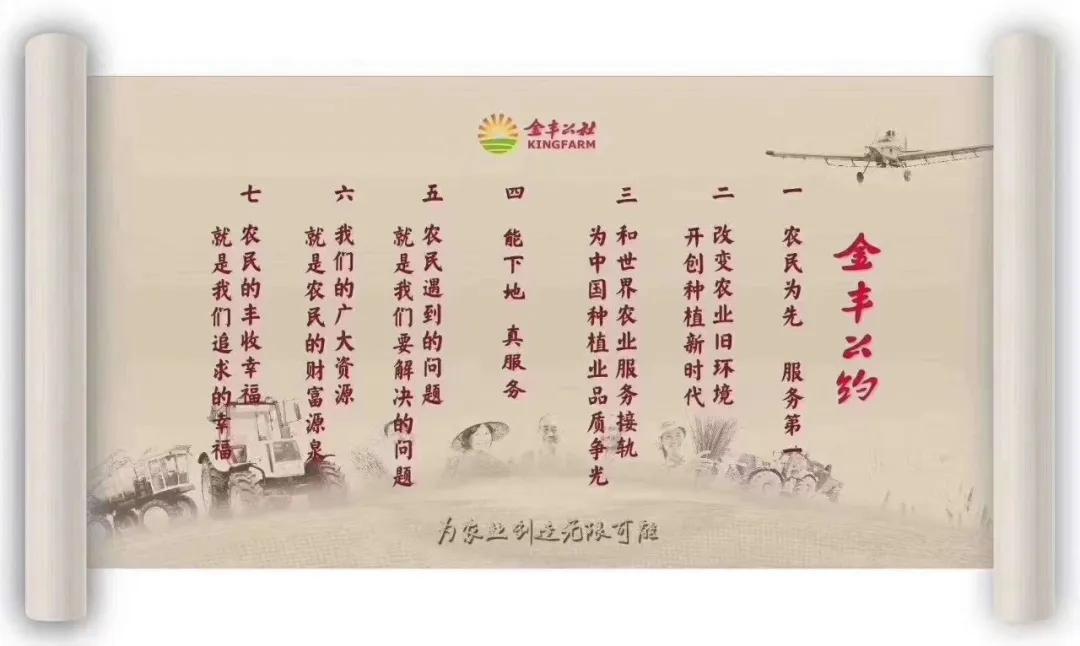 金丰公社
KINGFARM
金丰公约
一 农民为先 服务第一
二 改变农业旧环境
开创种植新时代
三 和世界农业服务接轨
为中国种植业品质争光
四 能下地 真服务
五 农民遇到的问题
就是我们要解决的问题
六 我们的广大资源
就是农民的财富源泉
七 农民的丰收幸福
就是我们追求的幸福
为农业创造无限可能